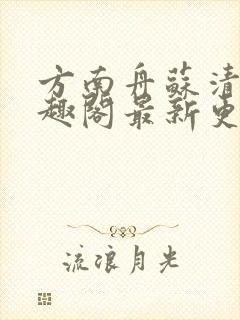 方南舟蘇清
趣閣最新更
流浪月光